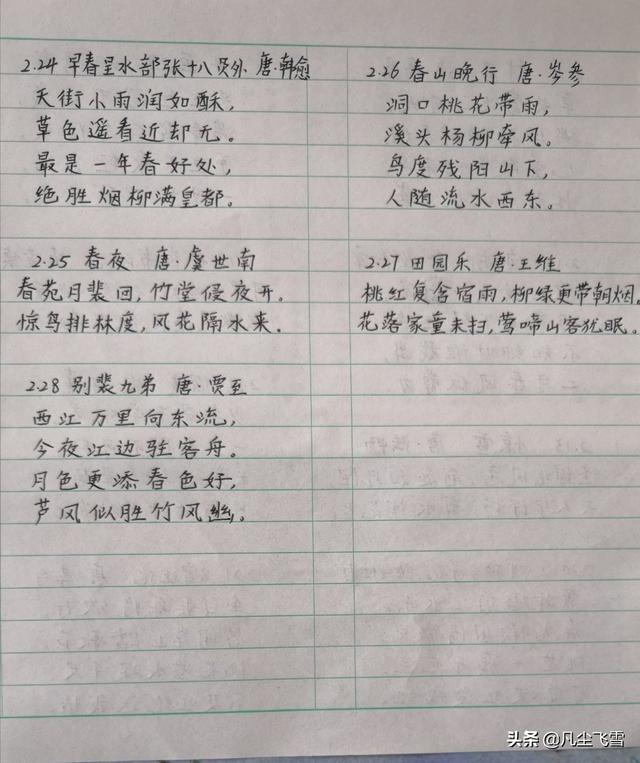 2.24 早春呈水部张十八员外 唐·韩愈
天街小雨润如酥,
草色遥看近却无。
最是一年春好处,
绝胜烟柳满皇都。
2.25 春夜 唐·虞世南
春苑月裴回,竹堂侵夜开。
惊鸟排林度,风花隔水来.
2.28 别裴九弟 唐·贾至
西江万里向东流,
今夜江边驻客舟。
月色更添春色好,
芦风似胜竹风幽。
2.26 春山晚行 唐·岑参
洞口桃花带雨,
溪头杨柳牵风。
鸟度残阳山下,
人随流水西东。
2.27 田园乐 唐·王维
桃红复含宿雨,柳绿更带朝烟.
花落家童未扫,莺啼山客犹眠。
头条 @凡尘飞雪